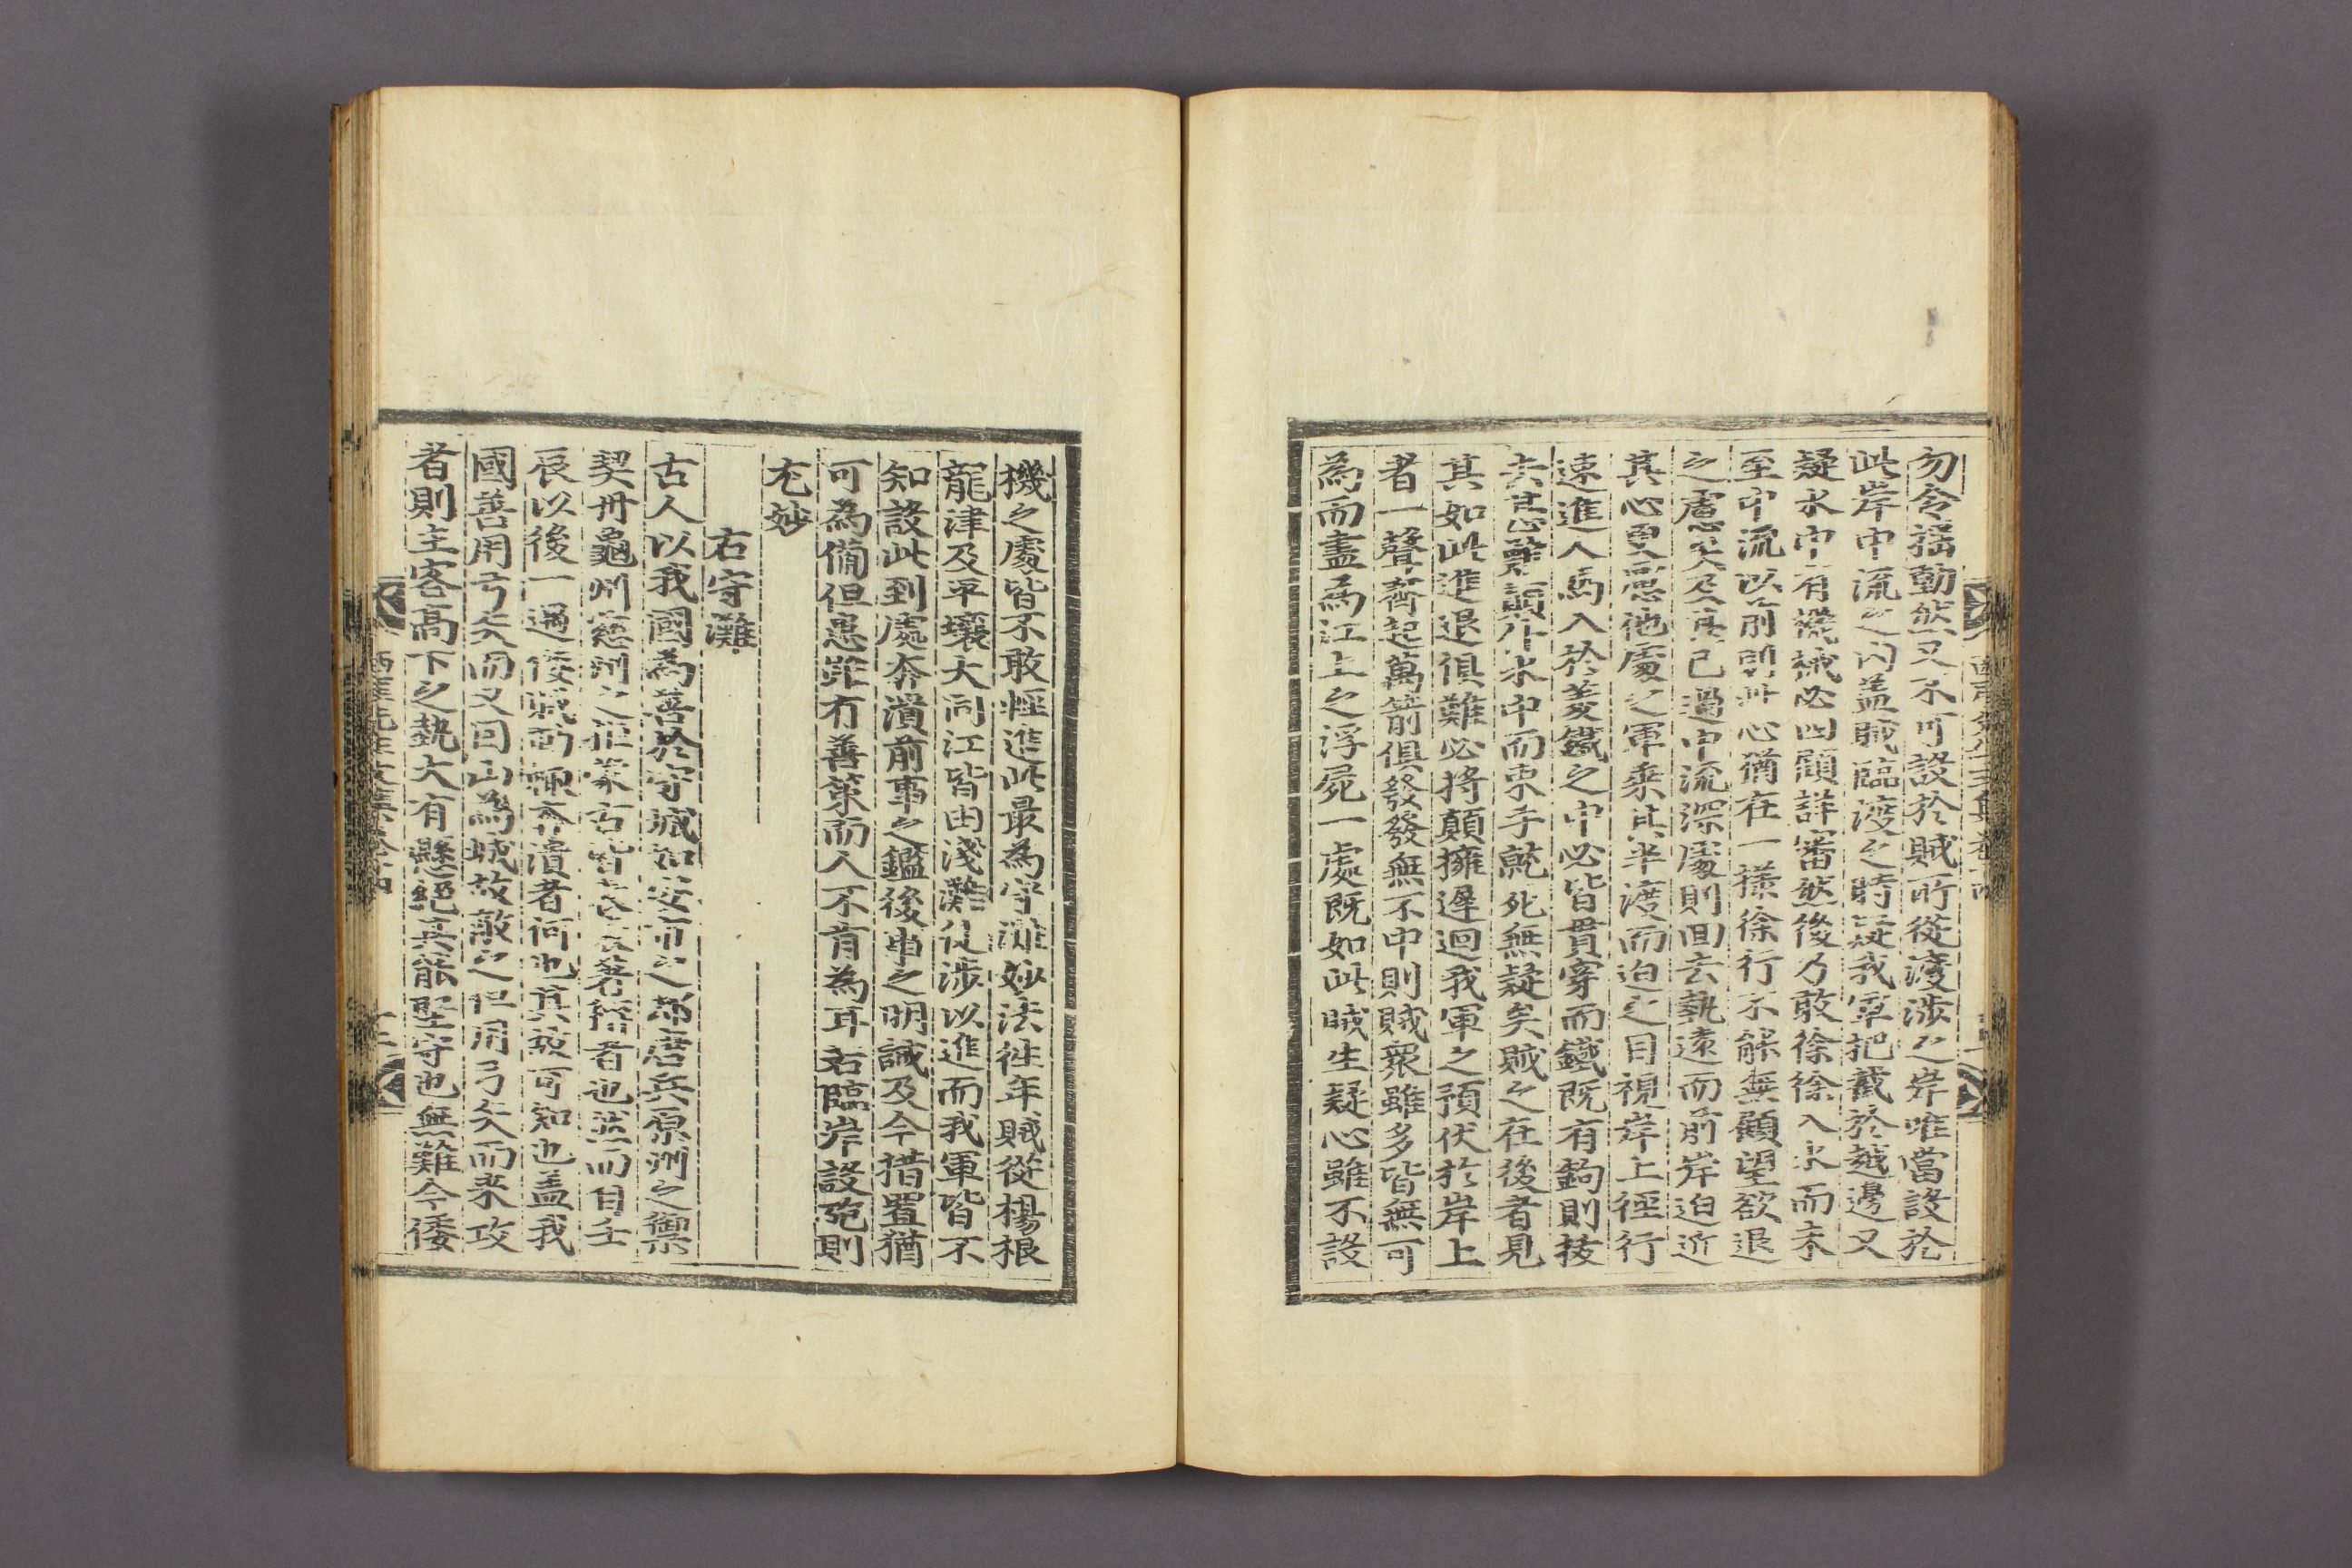 勿令搖動然又不可設於賊所從渡涉之岸唯當設於
此岸中流之內盖賊臨渡之時疑我軍把截於越邊又
疑水中有機械必四顧詳審然後乃敢徐徐入水而未
至中流以前則此心猶在一樣徐行不能無顧望欲退
之慮矣及其已過中流深處則回去勢遠而前岸迫近
其心更怨他處之軍乘其半渡而迫之目視岸上徑行
速進人馬入於菱鐵之中必皆貫穿而鐵既有鉤則拔
去其 水中而束手就死無疑矣賊之在後者見
其如此進退俱難必將顛擁遲迴我軍之預伏於岸上
者一聲齊起萬箭俱發發無不中則賊衆雖多皆無可
為而盡為江上之浮屍一處既如此賊生疑心雖不設
機之處皆不敢輕進此最為守灘妙法往年賊從楊根
龍津及平壤大同江皆由淺灘徒涉以進而我軍皆不
知設此到處奔潰前事之鑑後事之明誡及今措置猶
可為備但患非有善策而人不肯為耳若臨岸設砲則
尤妙
右守灘
古人以我國為善於守城如安市之却唐兵原州之禦
契丹龜州慈州之拒蒙古皆 著稱者也然而自壬
辰以後一遇倭賊而輒奔潰者何也其故可知也盖我
國善用弓矢而又因山為城故敵之但用弓矢而來攻
者則主客高下之勢大有懸絕其能堅守也無難今倭
西厓先生文集卷十四